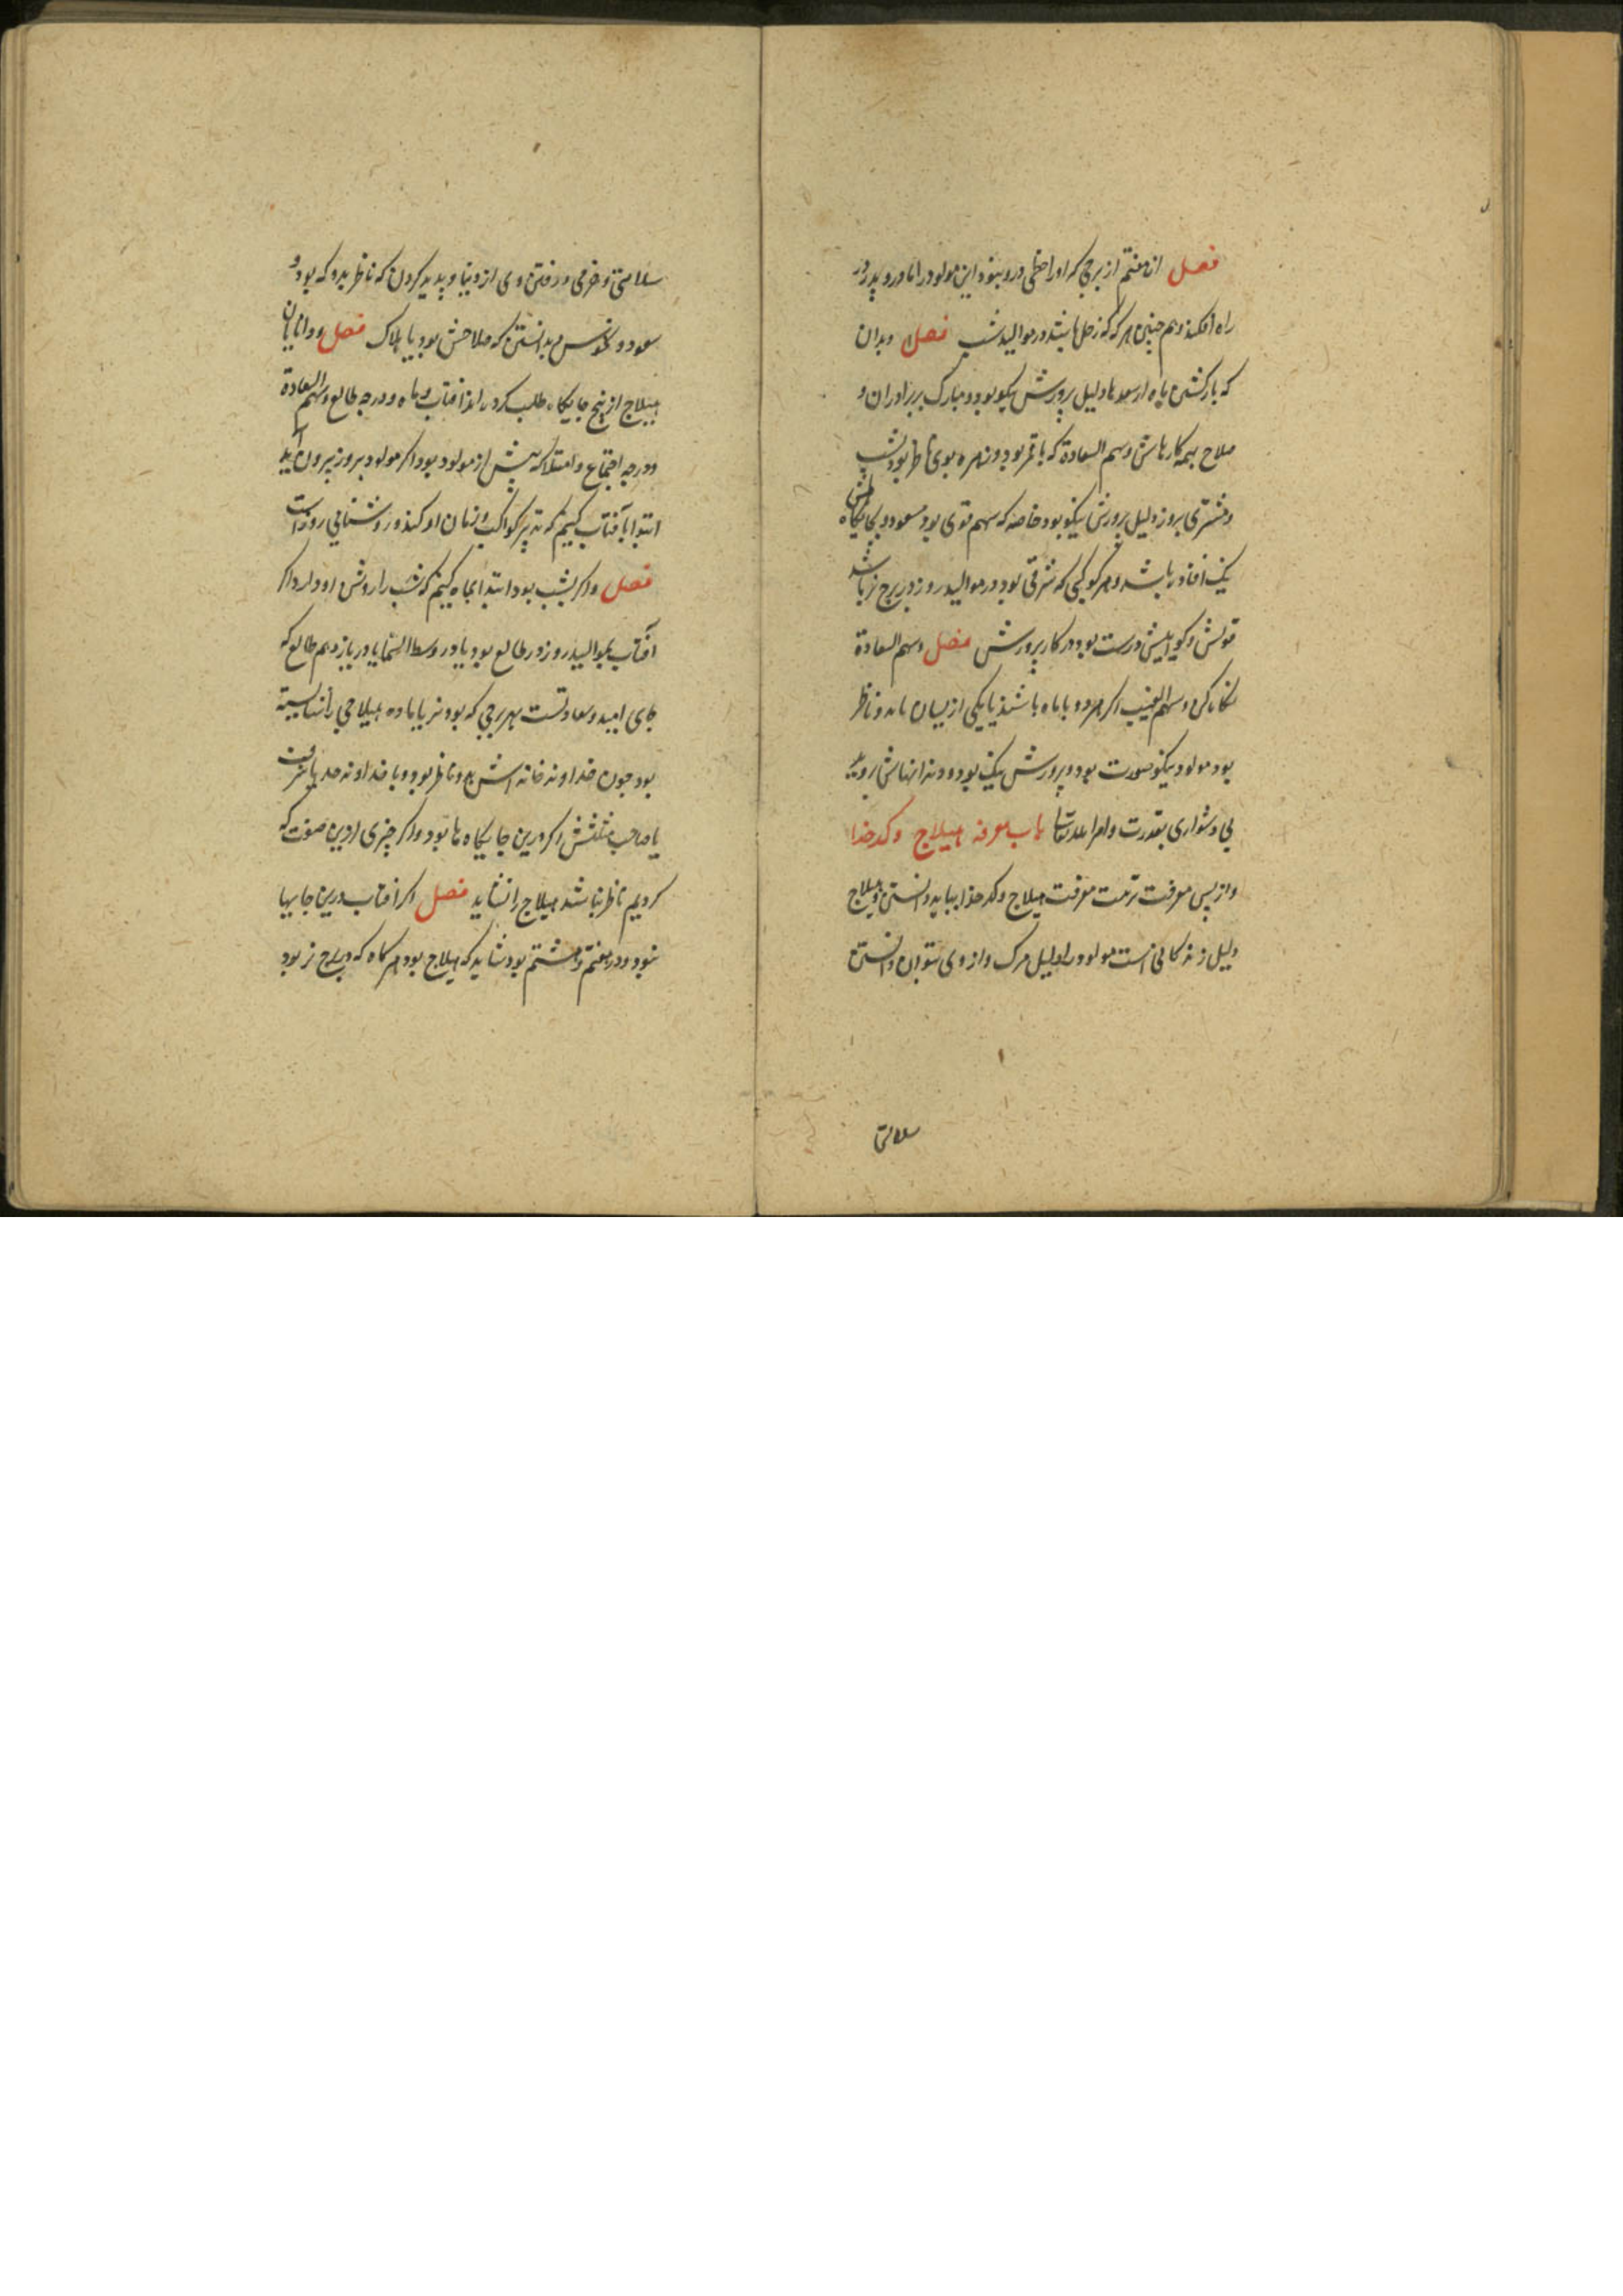 فصل از هفتم از برجی که او را حظی درو نبود این مولود را مادر و پدر در
راه افکند و هم چنین هر که که زحل باشد در موالید شب فصل و بدان
که بازگشتن ماه از سعدها دلیل پرورش نیکو بود و مبارک بر برادران و
صلاح همه کارهاش و سهم السعادة که با قمر بود و زهره بوی ناظر بود بشب
و مشتری بروز دلیل پرورش نیکو بود خاصه که سهم قوی بود مسعود و بجایگاه
نیک افتاده باشد و هر کوکبی که شرقی بود در موالید روز در برج نر باشد
قولش و گواهیش درست بود در کار پرورش فصل و سهم السعادة
و سهم الغیب اگر هر دو با ماه باشند یا یکی از یشان ماه و ناظر
بود مولود نیکو صورت بود و پرورش نیک بود و دندانهاش بروید
بی دشواری بقدرت و امر الله تعالی باب معرفه هیلاج و کدخدا
و از پس معرفت تربیت معرفت هیلاج و کدخدا بباید دانستن و هیلاج
دلیل زندگانی است مولود را و دلیل مرگ و از وی بتوان دانستن
سلامتی
سلامتی و خرمی و رفتن وی از دنیا و پدید کردن که ناظر بدو که بود و
سعود و نحوس و بدانستن که صلاحش بود یا هلاک فصل و دانایان
هیلاج از پنج جایگاه طلب کردند از آفتاب و ماه و درجه طالع و سهم السعادة
و درجه اجتماع و امتلا که پیش از مولود بود اگر مولود بروز بیرون آید
ابتدا بآفتاب کنیم که تدبیر کواکب و زمان او کند و روشنایی روز است
فصل و اگر بشب بود ابتدا بماه کنیم که شب را روشن او دارد اگر
آفتاب بموالید روز در طالع بود یا در وسط السما یا در یازدهم طالع که
جای امید و سعادتست بهر برجی که بود نر یا ماده هیلاجی را شایسته
بود چون خداوند خانه اش بدو ناظر بود و یا خداوند حد یا شرف
یا صاحب مثلثش اگر درین جایگاه ها بود و اگر چیزی ازین صفت که
کردیم ناظر نباشد هیلاج را نشاید فصل اگر آفتاب درین جایها
نبود و در هفتم و هشتم بود شاید که هیلاج بود هر گاه که در برج نر بود